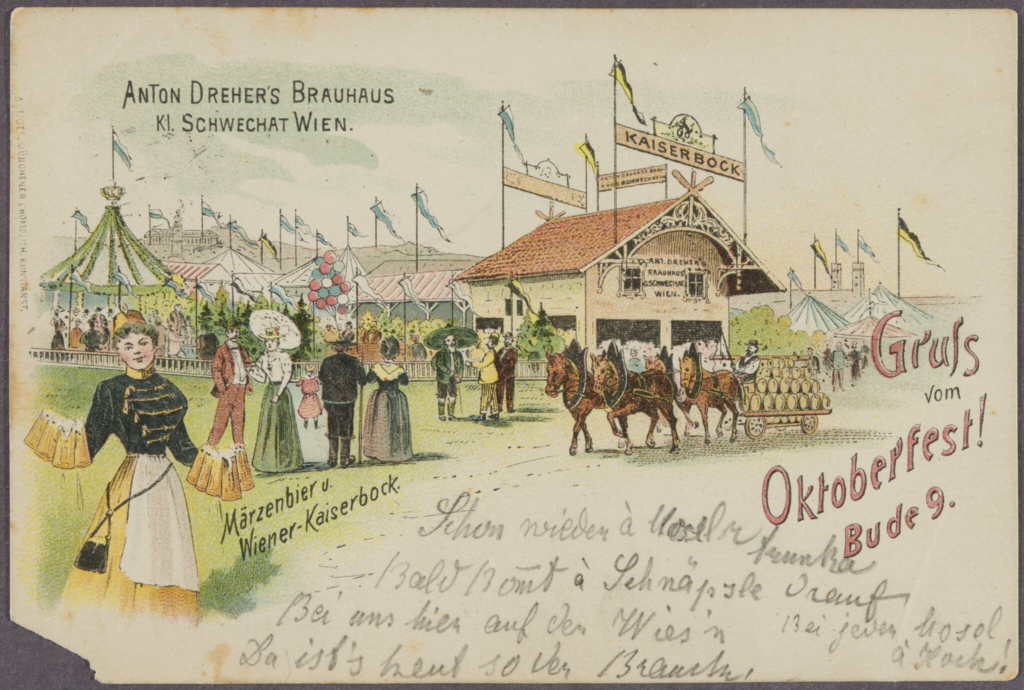 ANTON DREHER'S BRAUHAUS
Kl. SCHWECHAT WIEN.
KAISERBOCK
ANT. DREHER'S
BRAUHAUS
Kl. SCHWECHAT
WIEN.
Gruss
vom
Oktoberfest!
Bude 9.
Märzenbier u.
Wiener-Kaiserbock.
Schon wieder à trunka
Bald kommt à Schnäpsle drauf
Bei uns hier auf der Wies'n
Da ist's heut so der Brauch!
Bei jeder
à Hoch!